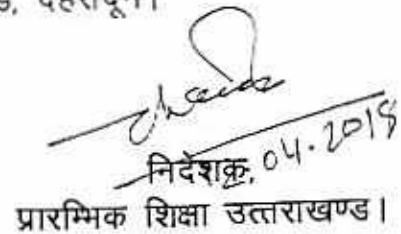 देहरादून।
निदेशक, 04.2018
प्रारम्भिक शिक्षा उत्तराखण्ड।